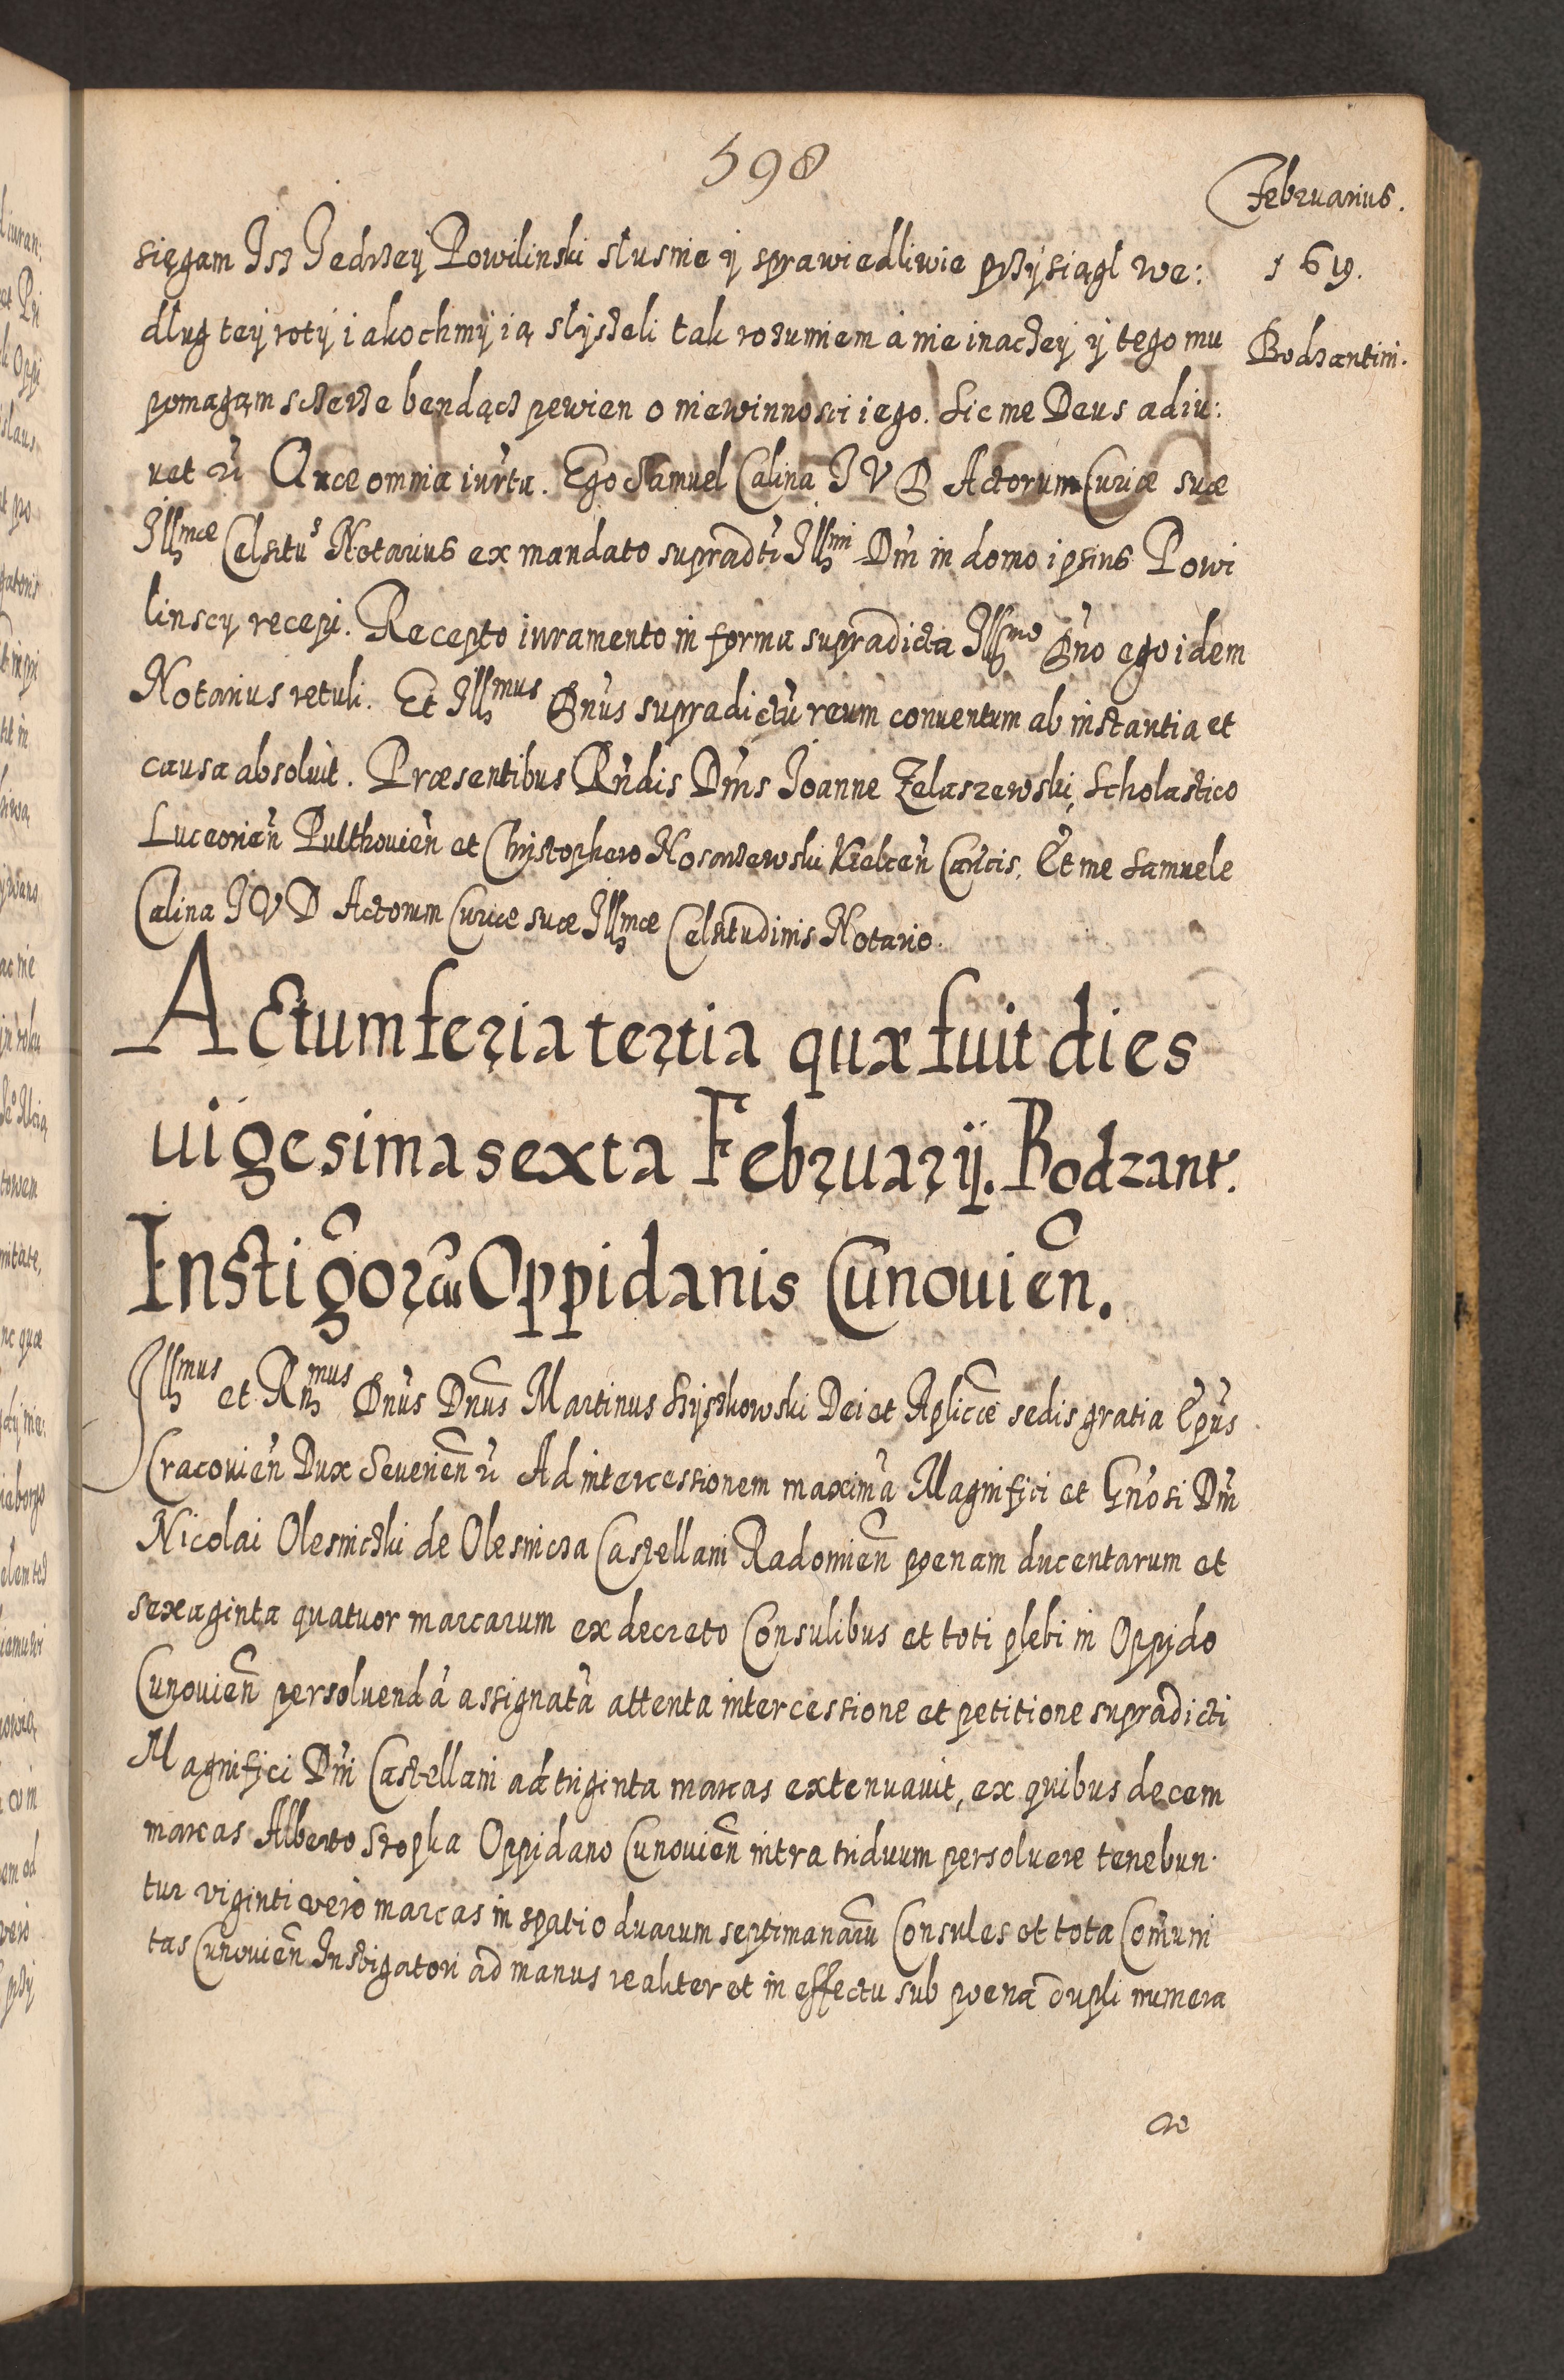 598
Februarius.
1619.
Bodzantini.
sięgam Isz Jedrzey Powilinski slusnie ÿ sprawiedliwie przÿsiągl we:
dlug teÿ rotÿ iakochmÿ ią slÿszeli tak rozumiem á nie inaczeÿ ÿ tego mu
pomagąm sczerze bendącz pewien o niewinnosci iego. Sic me Deus adiu:
uet Quae omnia iurta. Ego Samuel Calina I V D Actorum Curiae suae
Illmae Celsitus Notarius ex mandato supradti Illmi Dni in domo ipsius Powi
linscy recepi. Recepto iuramento in forma supradicta Illmo Dno ego idem
Notarius retuli. Et Illmus Dnus supradictu reum conuentum ab instantia et
causa absoluit. Praesentibus Rndis Dnis Joanne Zelaszewski, Scholastico
Luceorien Pulthouien et Christophero Nosarzewski Kielcen Cancis, Et me Samuele
Calina I V D Actorum Curiae suae Illmae Celsitudinis Notario.
Actum feria tertia quae fuit dies
uigesima sexta Februarÿ. Bodzant.
Instigor cu Oppidanis Cunouien.
Illmus et Rmus Dnus Dnus Martinus Szÿszkowski Dei et Aplicae sedis gratia Epus
Cracouien Dux Seuerien Ad intercessionem maxima Magnifici et Gnosi Dni
Nicolai Olesniczki de Olesnicza Castellani Radomien poenam ducentarum et
sexaginta quatuor marcarum ex decreto Consulibus et toti plebi in Oppido
Cunouien persoluendá assignatá attenta intercessione et petitione supradicti
Magnifici Dni Castellani ad triginta marcas extenuauit, ex quibus decem
marcas Alberto Stopka Oppidano Cunouien intra triduum persoluere tenebun
tur viginti vero marcas in spatio duarum septimanaru Consules et tota Comuni
tas Cunouien Instigatori ad manus realiter et in effectu sub poena dupli numera